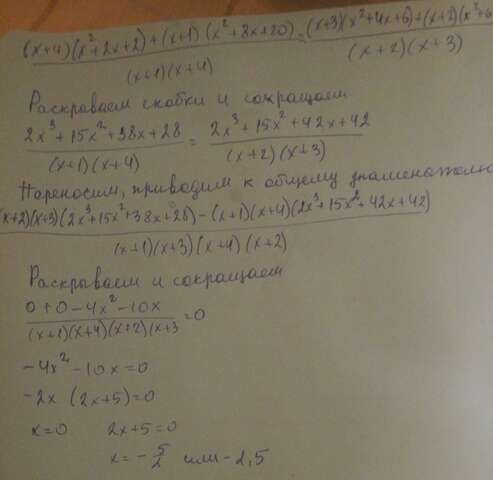 (x+4)(x²+2x+2)+(x+1)(x²+8x+20) = (x+3)(x²+4x+6)+(x+2)(x²+6
(x+1)(x+4) (x+2)(x+3)
Раскраваем скобки и сокращаем
2x³+15x²+38x+28 = 2x³+15x²+42x+42
(x+1)(x+4) (x+2)(x+3)
Пареносим, приводим к общему знаменателю
(x+2)(x+3)(2x³+15x²+38x+28)-(x+1)(x+4)(2x³+15x²+42x+42)
(x+1)(x+3)(x+4)(x+2)
Раскрываем и сокращаем
0+0-4x²-10x
(x+1)(x+4)(x+2)(x+3 =0
-4x²-10x=0
-2x (2x+5)=0
x=0 2x+5=0
x=-5/2 или -2,5